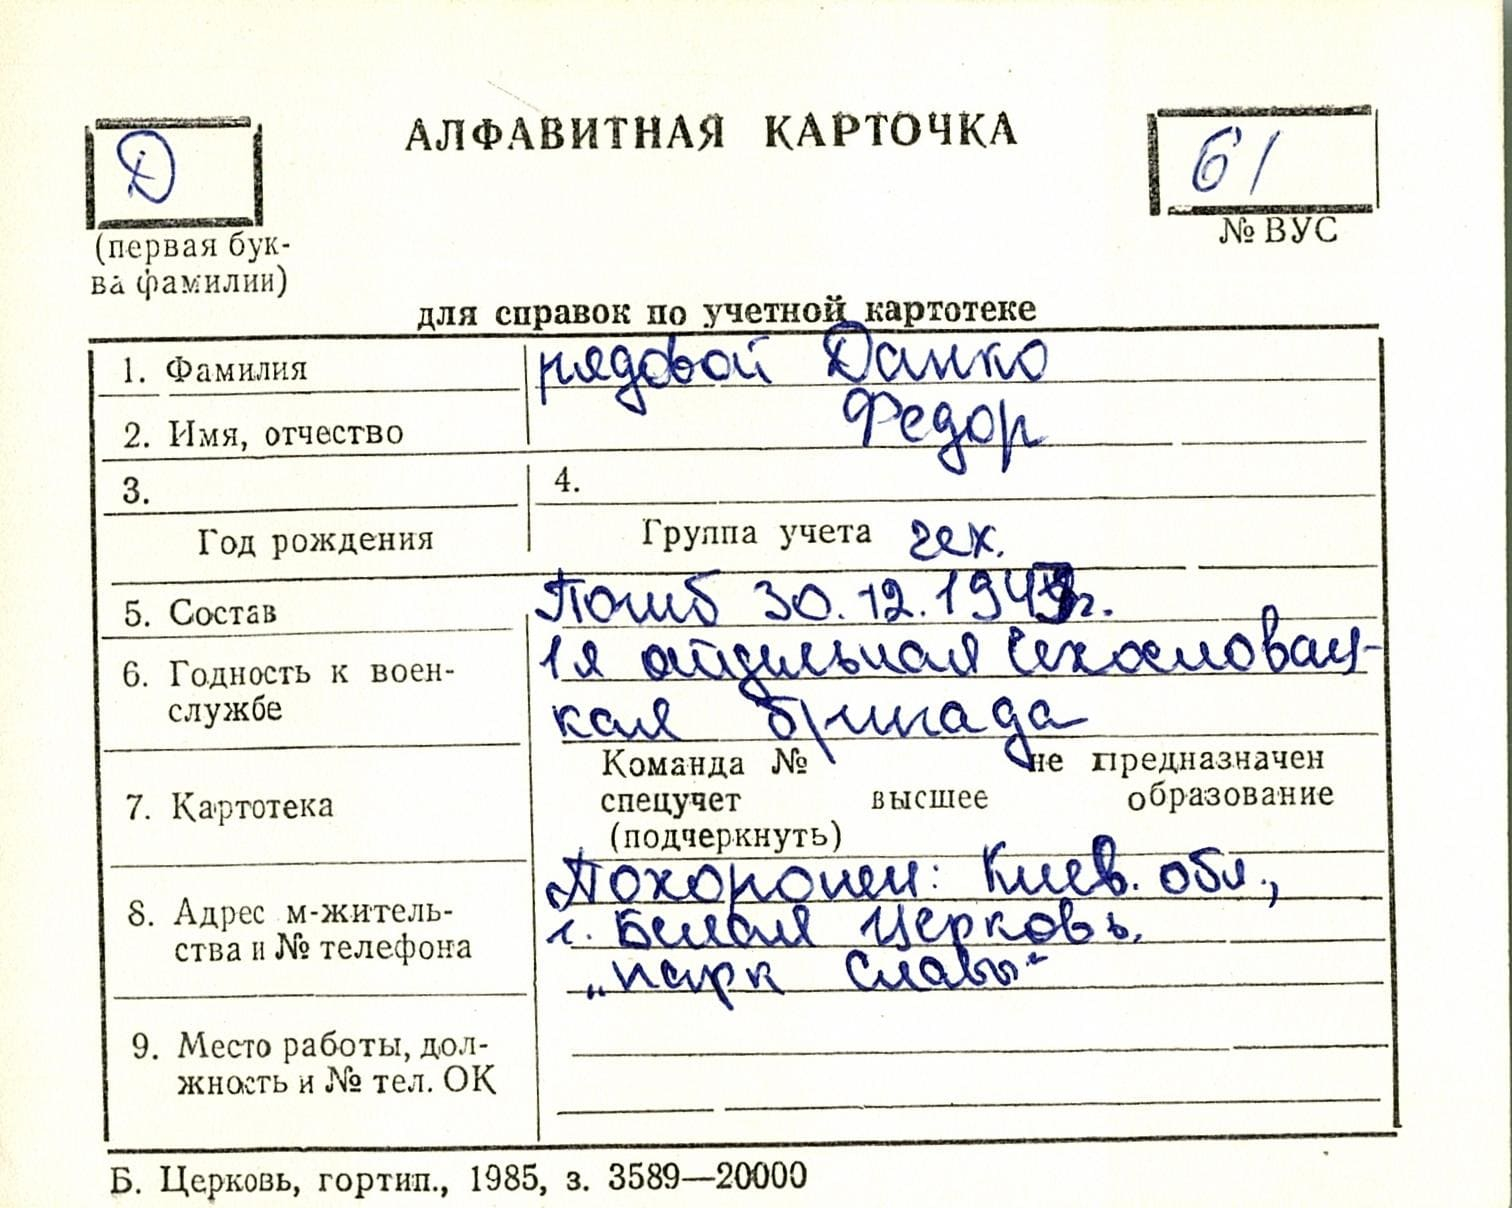 АЛФАВИТНАЯ КАРТОЧКА
Д
61
(первая бук-
ва фамилии)
№ ВУС
для справок по учетной картотеке
1. Фамилия рядовой Данко
2. Имя, отчество Федор
3. 4.
Год рождения Группа учета чех.
5. Состав Погиб 30.12.194 г.
6. Годность к воен-
службе
1я отдельная Чехословац-
кая бригада
7. Картотека
Команда № не предназначен
спецучет высшее образование
(подчеркнуть)
8. Адрес м-житель-
ства и № телефона
Похоронен: Киев. обл.,
г. Белая Церковь,
„парк Славы"
9. Место работы, дол-
жность и № тел. ОК
Б. Церковь, гортип., 1985, з. 3589—20000